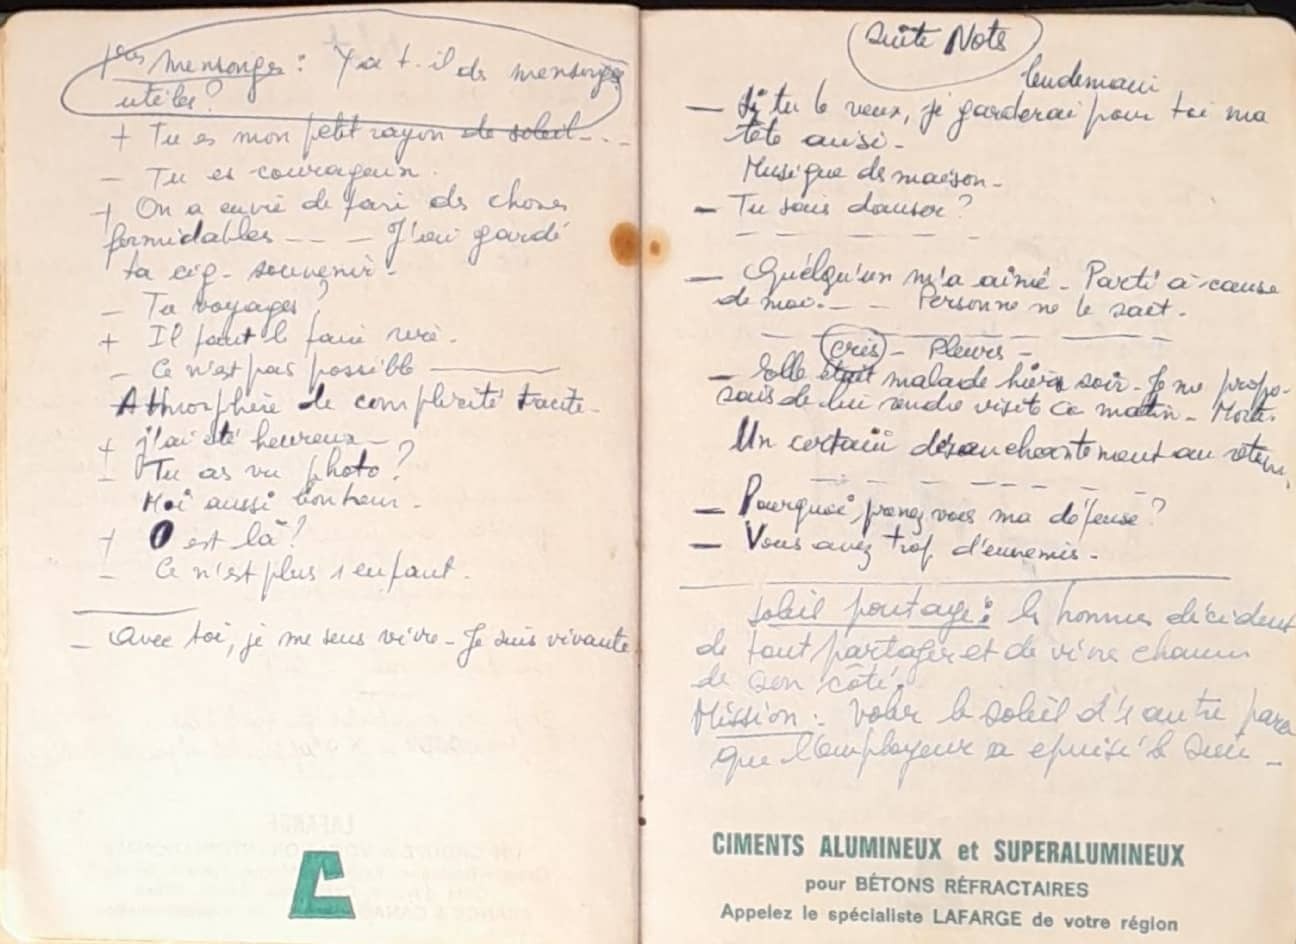 mensonges : Y a t-il des mensonges
utiles?
+ Tu es mon petit rayon de soleil - . .
— Tu es courageux.
+ On a envie de faire des choses
formidables - - - J'ai gardé
ta cig- souvenir.
— Tu voyages ?
+ Il faut le faire
— Ce n'est pas possible
Athmosphère de complicité tacite.
+ j'ai été heureux -
— Tu as vu photo ?
Moi aussi bonheur.
+ O est là ?
— Ce n'est plus 1 enfant.
— Avec toi, je me sens vivre - Je suis vivante
Suite Note
lendemain
— Si tu le veux, je garderai pour toi ma
tête aussi -
Musique de maison -
— Tu sais danser ?
— Quelqu'un m'a aimé - Parti à cause
de moi. - - Personne ne le sait.
Cris - Pleurs -
— Elle était malade hier soir - Je me propo-
sais de lui rendre visite ce matin - Morte.
Un certain désanchantement au retour,
— Pourquoi prenez vous ma défense ?
— Vous avez trop d'ennemis -
Soleil partagé : les hommes décident
de tout partager et de vivre chacun
de son côté.
Mission : Voler le soleil d'1 autre parce
que l'employeur a épuisé le sien -
CIMENTS ALUMINEUX et SUPERALUMINEUX
pour BÉTONS RÉFRACTAIRES
Appelez le spécialiste LAFARGE de votre région